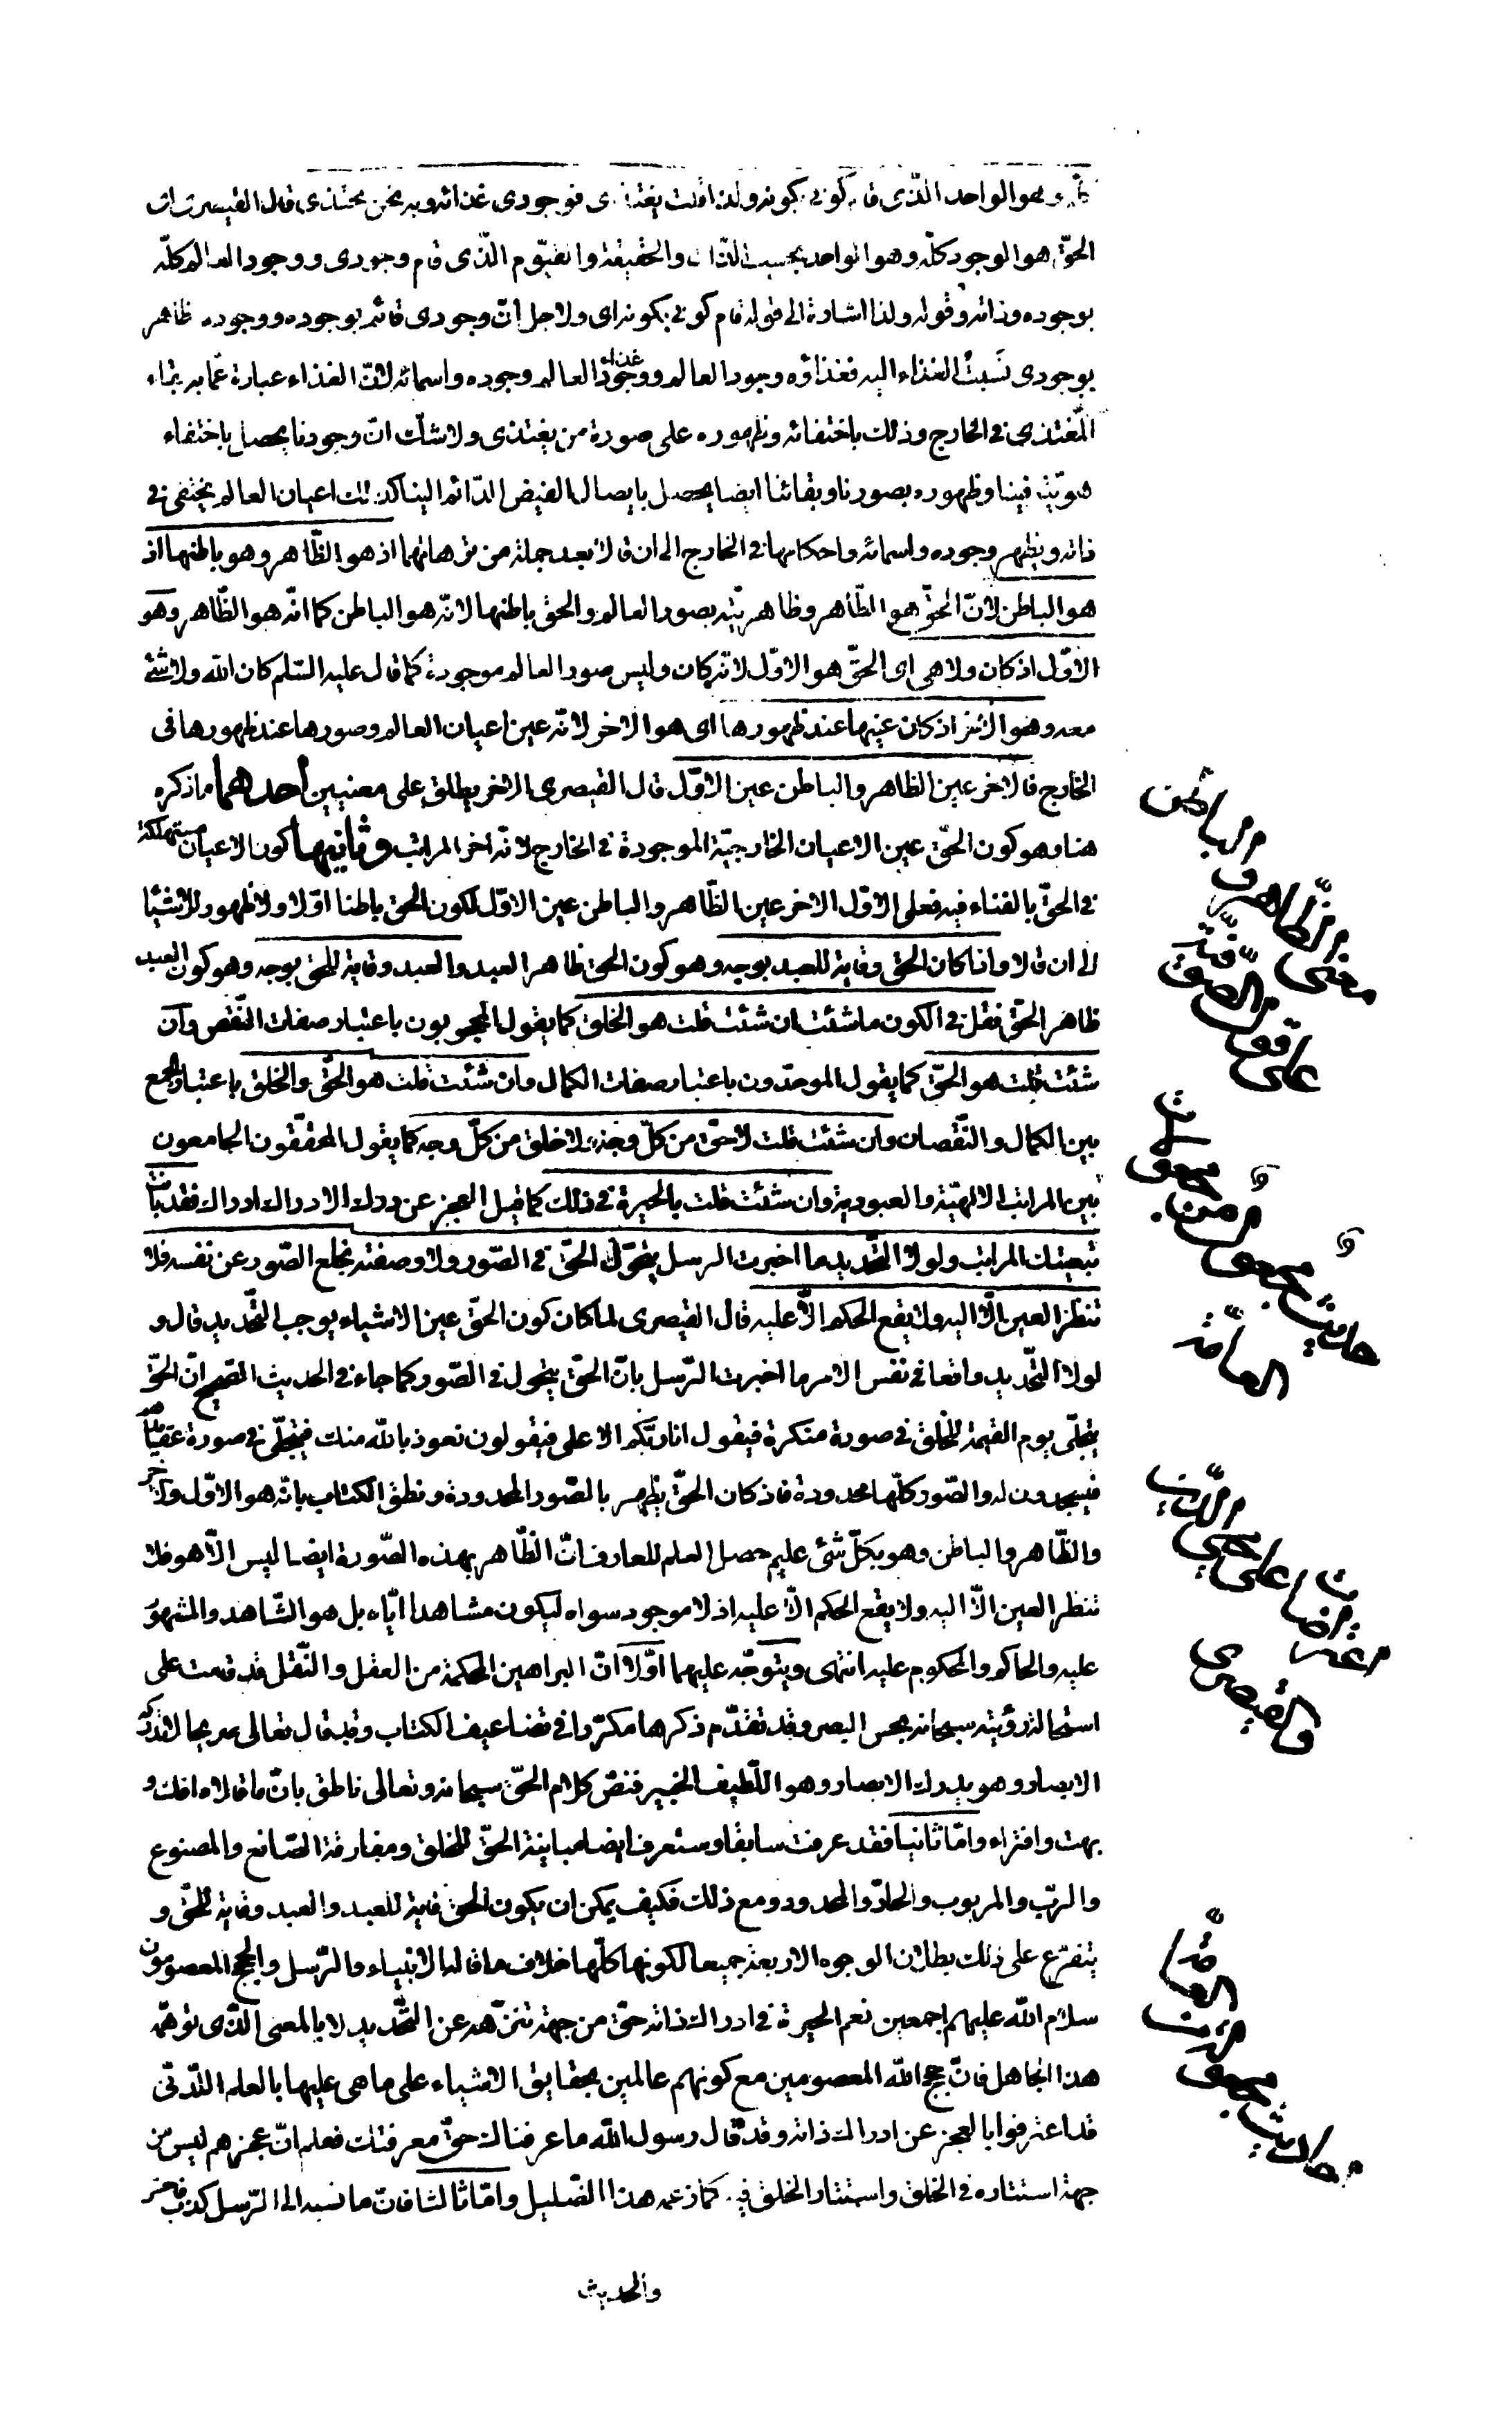 كلّه وهو الواحد الّذى قام كونى بكونه ولذا قلت يغتذى فوجودى غذائه وبه نحن نحتذى قال القيصرى ان
الحقّ هو الوجود كلّه وهو الواحد بحسب الذّات والحقيقة والقيّوم الّذى قام وجودى ووجود العالم كلّه
بوجوده وذاته وقوله ولذا اشارة الى قوله قام كونى بكونه اى ولاجل انّ وجودى قائم بوجوده ووجوده ظاهر
بوجودى نَسَبتُ الغذاء اليه فغذاؤه وجود العالم ووجود غذاء العالم وجوده واسمائه لانّ الغذاء عبارة عمّا به بقاء
المغتذى فى الخارج وذلك باختفائه وظهوره على صورة من يغتذى ولا شكّ انّ وجودنا يحصل باختفاء
هويّته فينا وظهوره بصورنا وبقائنا ايضا يحصل بايصال الفيض الدّائم الينا كذلك اعيان العالم يختفى فى
ذاته ويظهر وجوده واسمائه واحكامها فى الخارج الى ان قالا بعد جملة من ترهاتهما اذ هو الظّاهر وهو باطنها اذ
هو الباطن لانّ الحقّ هو الظّاهر وظاهريّته بصور العالم والحق باطنها لانّه هو الباطن كما انّه هو الظّاهر وهو
الاوّل اذ كان ولا هى اى الحقّ هو الاوّل لانّه كان وليس صور العالم موجودة كما قال عليه السّلم كان اللّه ولا شئ
معه وهو الاخر اذ كان عينها عند ظهورها اى هو الاخر لانّه عين اعيان العالم وصورها عند ظهورها فى
الخارج فالاخر عين الظاهر والباطن عين الاوّل قال القيصرى الاخر يطلق على معنيين احدهما ما ذكره
هنا وهو كون الحقّ عين الاعيان الخارجيّة الموجودة فى الخارج لانّه اخر المراتب وثانيها كون الاعيان مستهلكة
فى الحقّ بالفناء فيه فعلى الاوّل الاخر عين الظّاهر والباطن عين الاوّل لكون الحق باطنا اوّلا ولا ظهور للاشيا
الى ان قالا واذا كان الحق وقاية للعبد بوجه وهو كون الحق ظاهر العبد والعبد وقاية للحق بوجه وهو كون العبد
ظاهر الحقّ فقل فى الكون ما شئت ان شئت قلت هو الخلق كما يقول المحجوبون باعتبار صفات النّقص وان
شئت قلت هو الحقّ كما يقول الموحّدون باعتبار صفات الكمال وان شئت قلت هو الحقّ والخلق باعتبار الجمع
بين الكمال والنّقصان وان شئت قلت لا حقّ من كلّ وجه ولا خلق من كلّ وجه كما يقول المحقّقون الجامعون
بين المراتب الالهيّة والعبودية وان شئت قلت بالحيرة فى ذلك كما قيل العجز عن درك الادراك ادراك فقد بانت
بتعيينك المراتب ولولا التّحديد ما اخبرت الرسل بتحوّل الحقّ فى الصّور ولا وصفته بخلع الصّور عن نفسه فلا
تنظر العين الّا اليه ولا يقع الحكم الّا عليه قال القيصرى لما كان كون الحقّ عين الاشياء يوجب التّحديد قال و
لولا التّحديد واقعا فى نفس الامر ما اخبرت الرّسل بانّ الحقّ يتحول فى الصّور كما جاء فى الحديث الصّحيح انّ الحقّ
يتجلّى يوم القيمة للخلق فى صورة منكرة فيقول انا ربّكم الاعلى فيقولون نعوذ باللّه منك فيتجلّى فى صورة عقايدهم
فيسجدون له والصّور كلّها محدودة فاذ كان الحقّ يظهر بالصّور المحدودة ونطق الكتاب بانّه هو الاوّل والاخر
والظّاهر والباطن وهو بكلّ شئ عليم حصل العلم للعارف انّ الظّاهر بهذه الصّورة ايضا ليس الّا هو فلا
تنظر العين الّا اليه ولا يقع الحكم الّا عليه اذ لا موجود سواه ليكون مشاهدا ايّاه بل هو الشّاهد والمشهود
عليه والحاكم والمحكوم عليه انتهى ويتوجّه عليهما اوّلا انّ البراهين المحكمة من العقل والنّقل قد قامت على
استحالة رؤيته سبحانه بحس البصر وقد تقدّم ذكرها مكرّرا فى تضاعيف الكتاب وقد قال تعالى صريحا لا تدركه
الابصار وهو يدرك الابصار وهو اللّطيف الخبير فنصّ كلام الحقّ سبحانه وتعالى ناطق بانّ ما قالاه افك و
بهت وافتراء وامّا ثانيا فقد عرفت سابقا وستعرف ايضا مباينة الحقّ للخلق ومفارقة الصّانع والمصنوع
والرّب والمربوب والحادّ والمحدود ومع ذلك فكيف يمكن ان يكون الحق وقاية للعبد والعبد وقاية للحقّ و
يتفرّع على ذلك بطلان الوجوه الاربعة جميعا لكونها كلّها خلاف ما قاله الانبياء والرّسل والحجج المعصومون
سلام اللّه عليهم اجمعين نعم الحيرة فى ادراك ذاته حقّ من جهة تنزّهه عن التّحديد لا بالمعنى الّذى توهّمه
هذا الجاهل فانّ حجج اللّه المعصومين مع كونهم عالمين بحقايق الاشياء على ما هى عليها بالعلم اللّدنّى
قد اعترفوا بالعجز عن ادراك ذاته وقد قال رسول اللّه ما عرفناك حقّ معرفتك فعلم انّ عجزهم ليس من
جهة استتاره فى الخلق واستتار الخلق فيه كما زعمه هذا الضّليل وامّا ثالثا فانّ ما نسبه الى الرّسل كذب فاحش
والحديث
معنى الظّاهر والباطن
على قول الصّوفيّة
حديث مجعول من مجعولات
العامّة
اعتراضات على محيى الدّين
والقيصرى
احاديث مجعولة من
العامّة